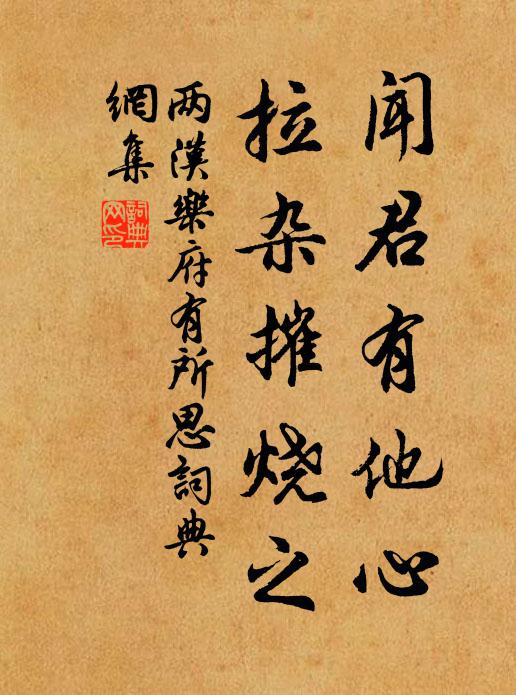 闻君有他心
拉杂摧烧之
两漢樂府有所思詞典
網集
詞典
网印